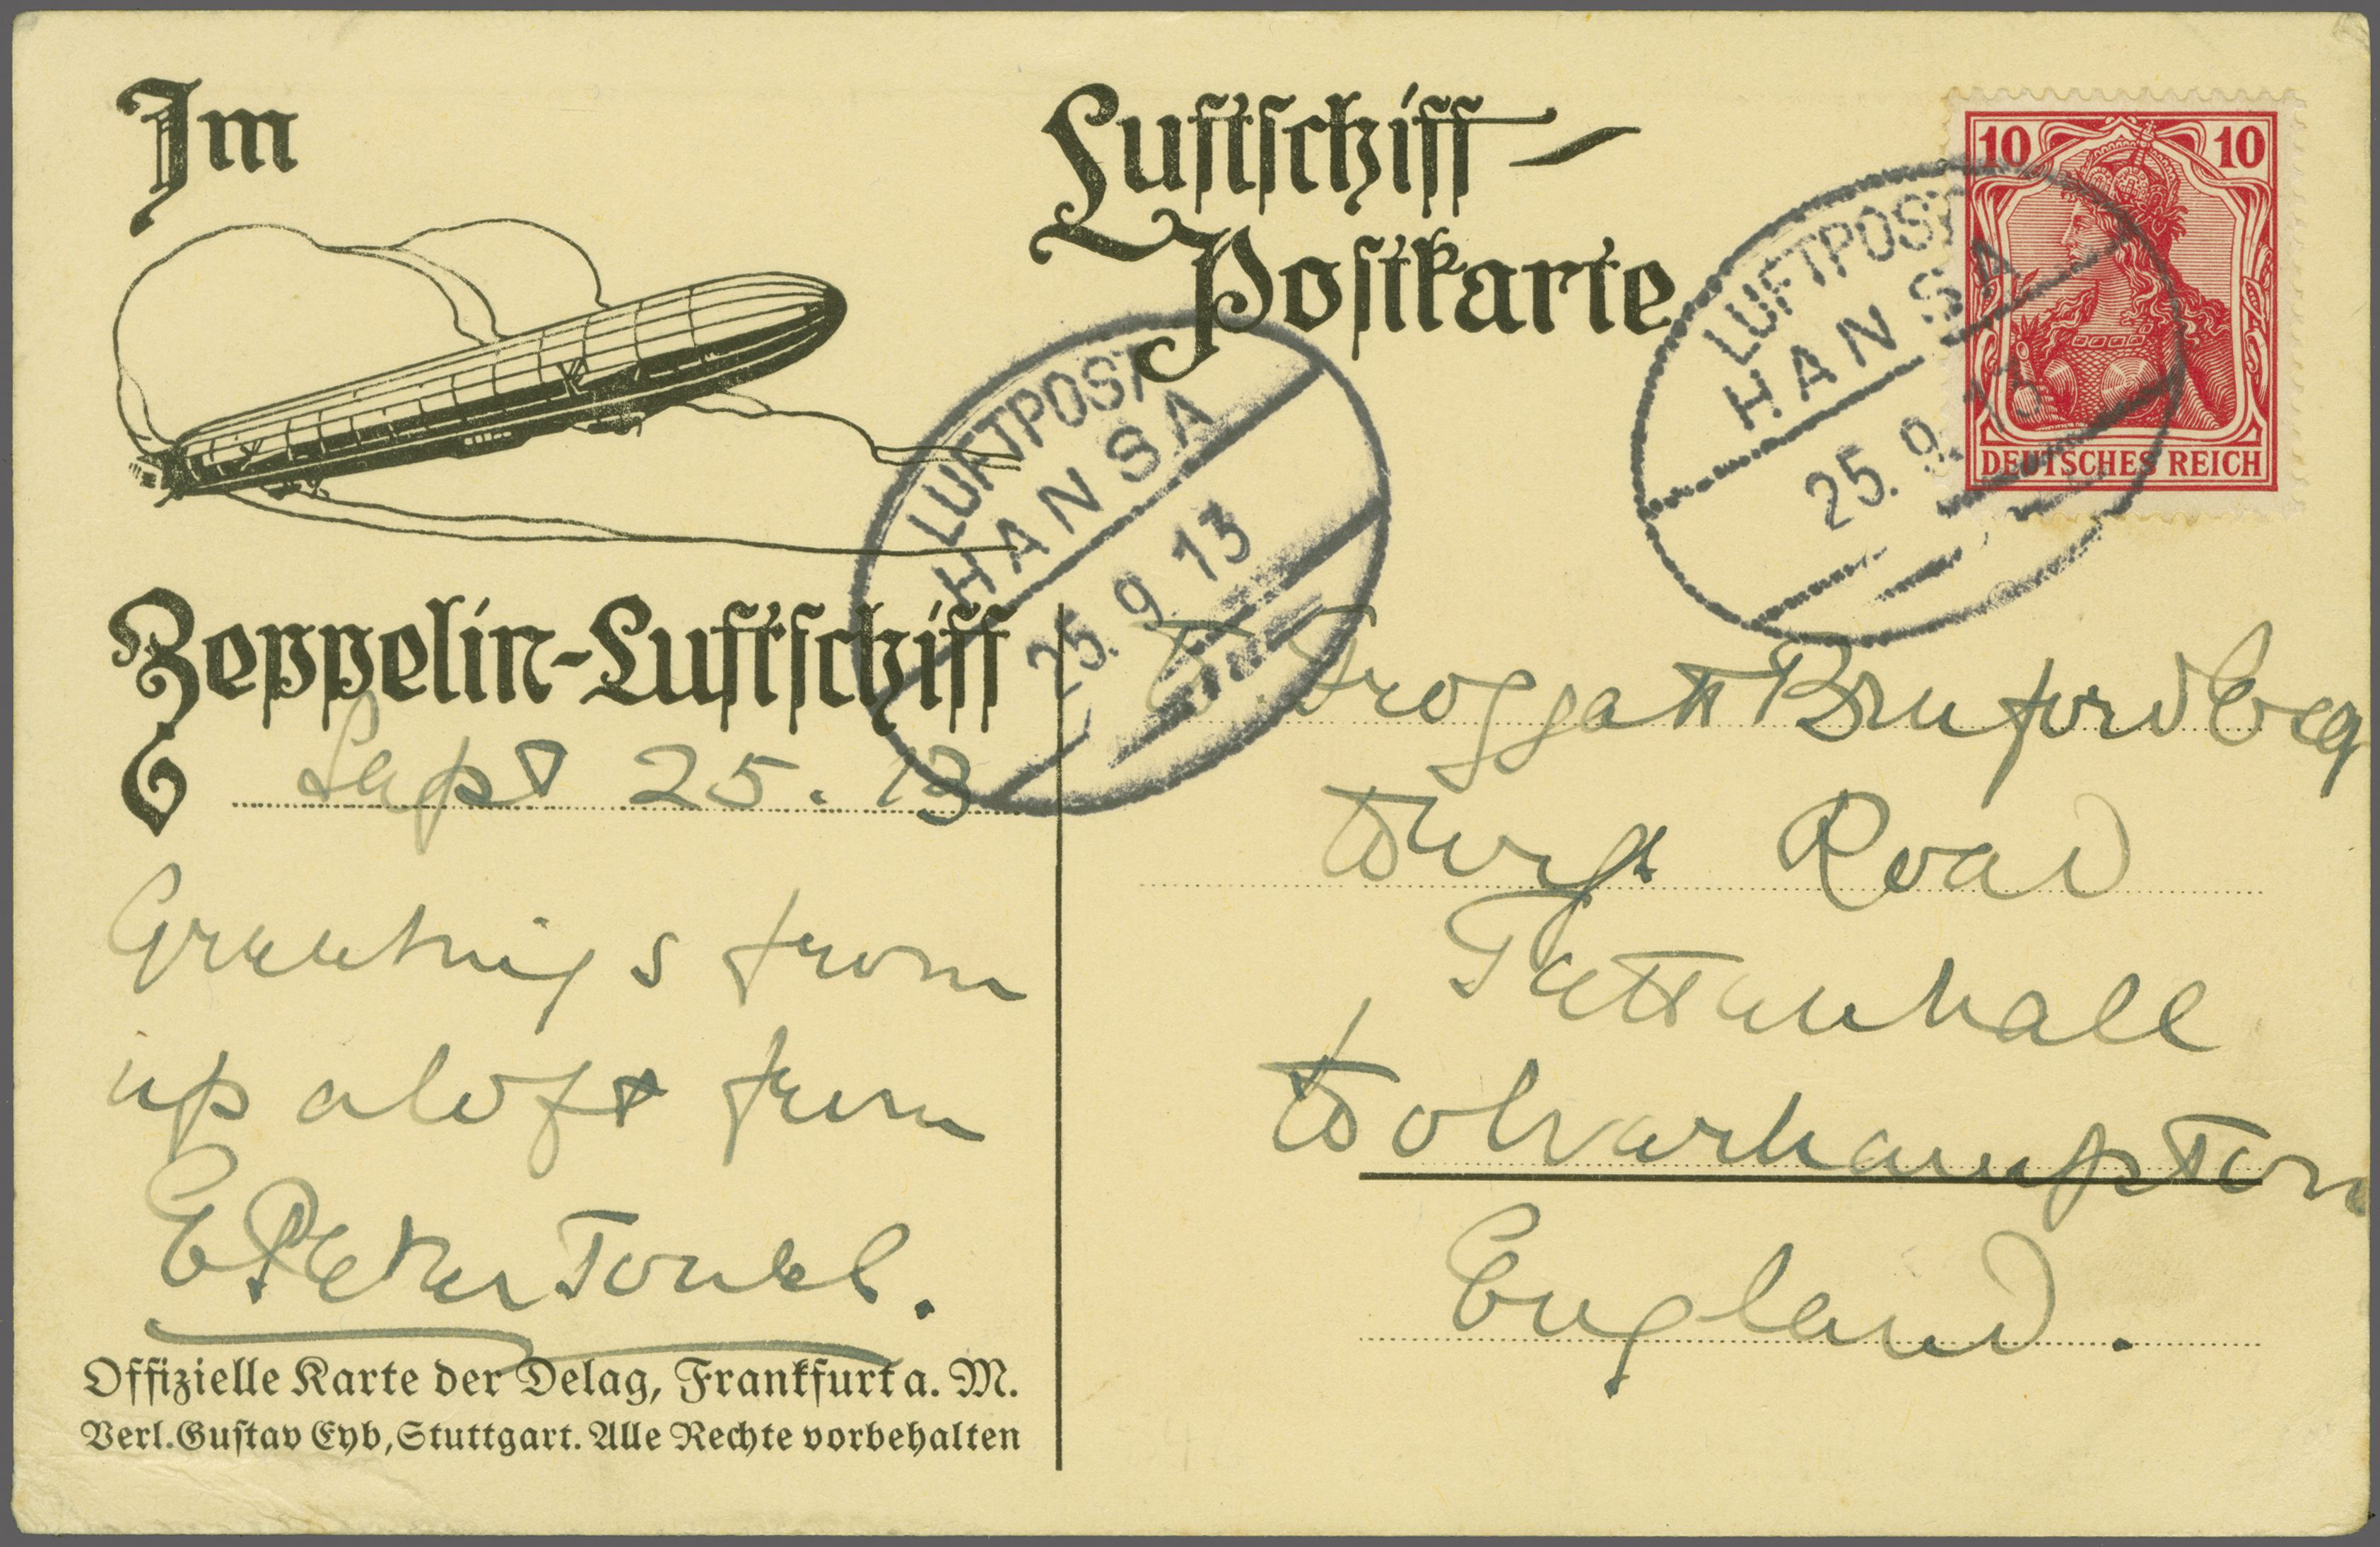 Im
Luftschiff-
Postkarte
10 10
DEUTSCHES REICH
LUFTPOST
HANSA
25. 9. 13
LUFTPOST
HANSA
25. 9. 13
Zeppelin-Luftschiff
Sept 25. 13
Greetings from
up aloft from
E
Offizielle Karte der Delag, Frankfurt a. M.
Verl. Gustav Eyb, Stuttgart. Alle Rechte vorbehalten
Froggatt Brufords Esq
Road
Tettenhall
Wolverhampton
England.